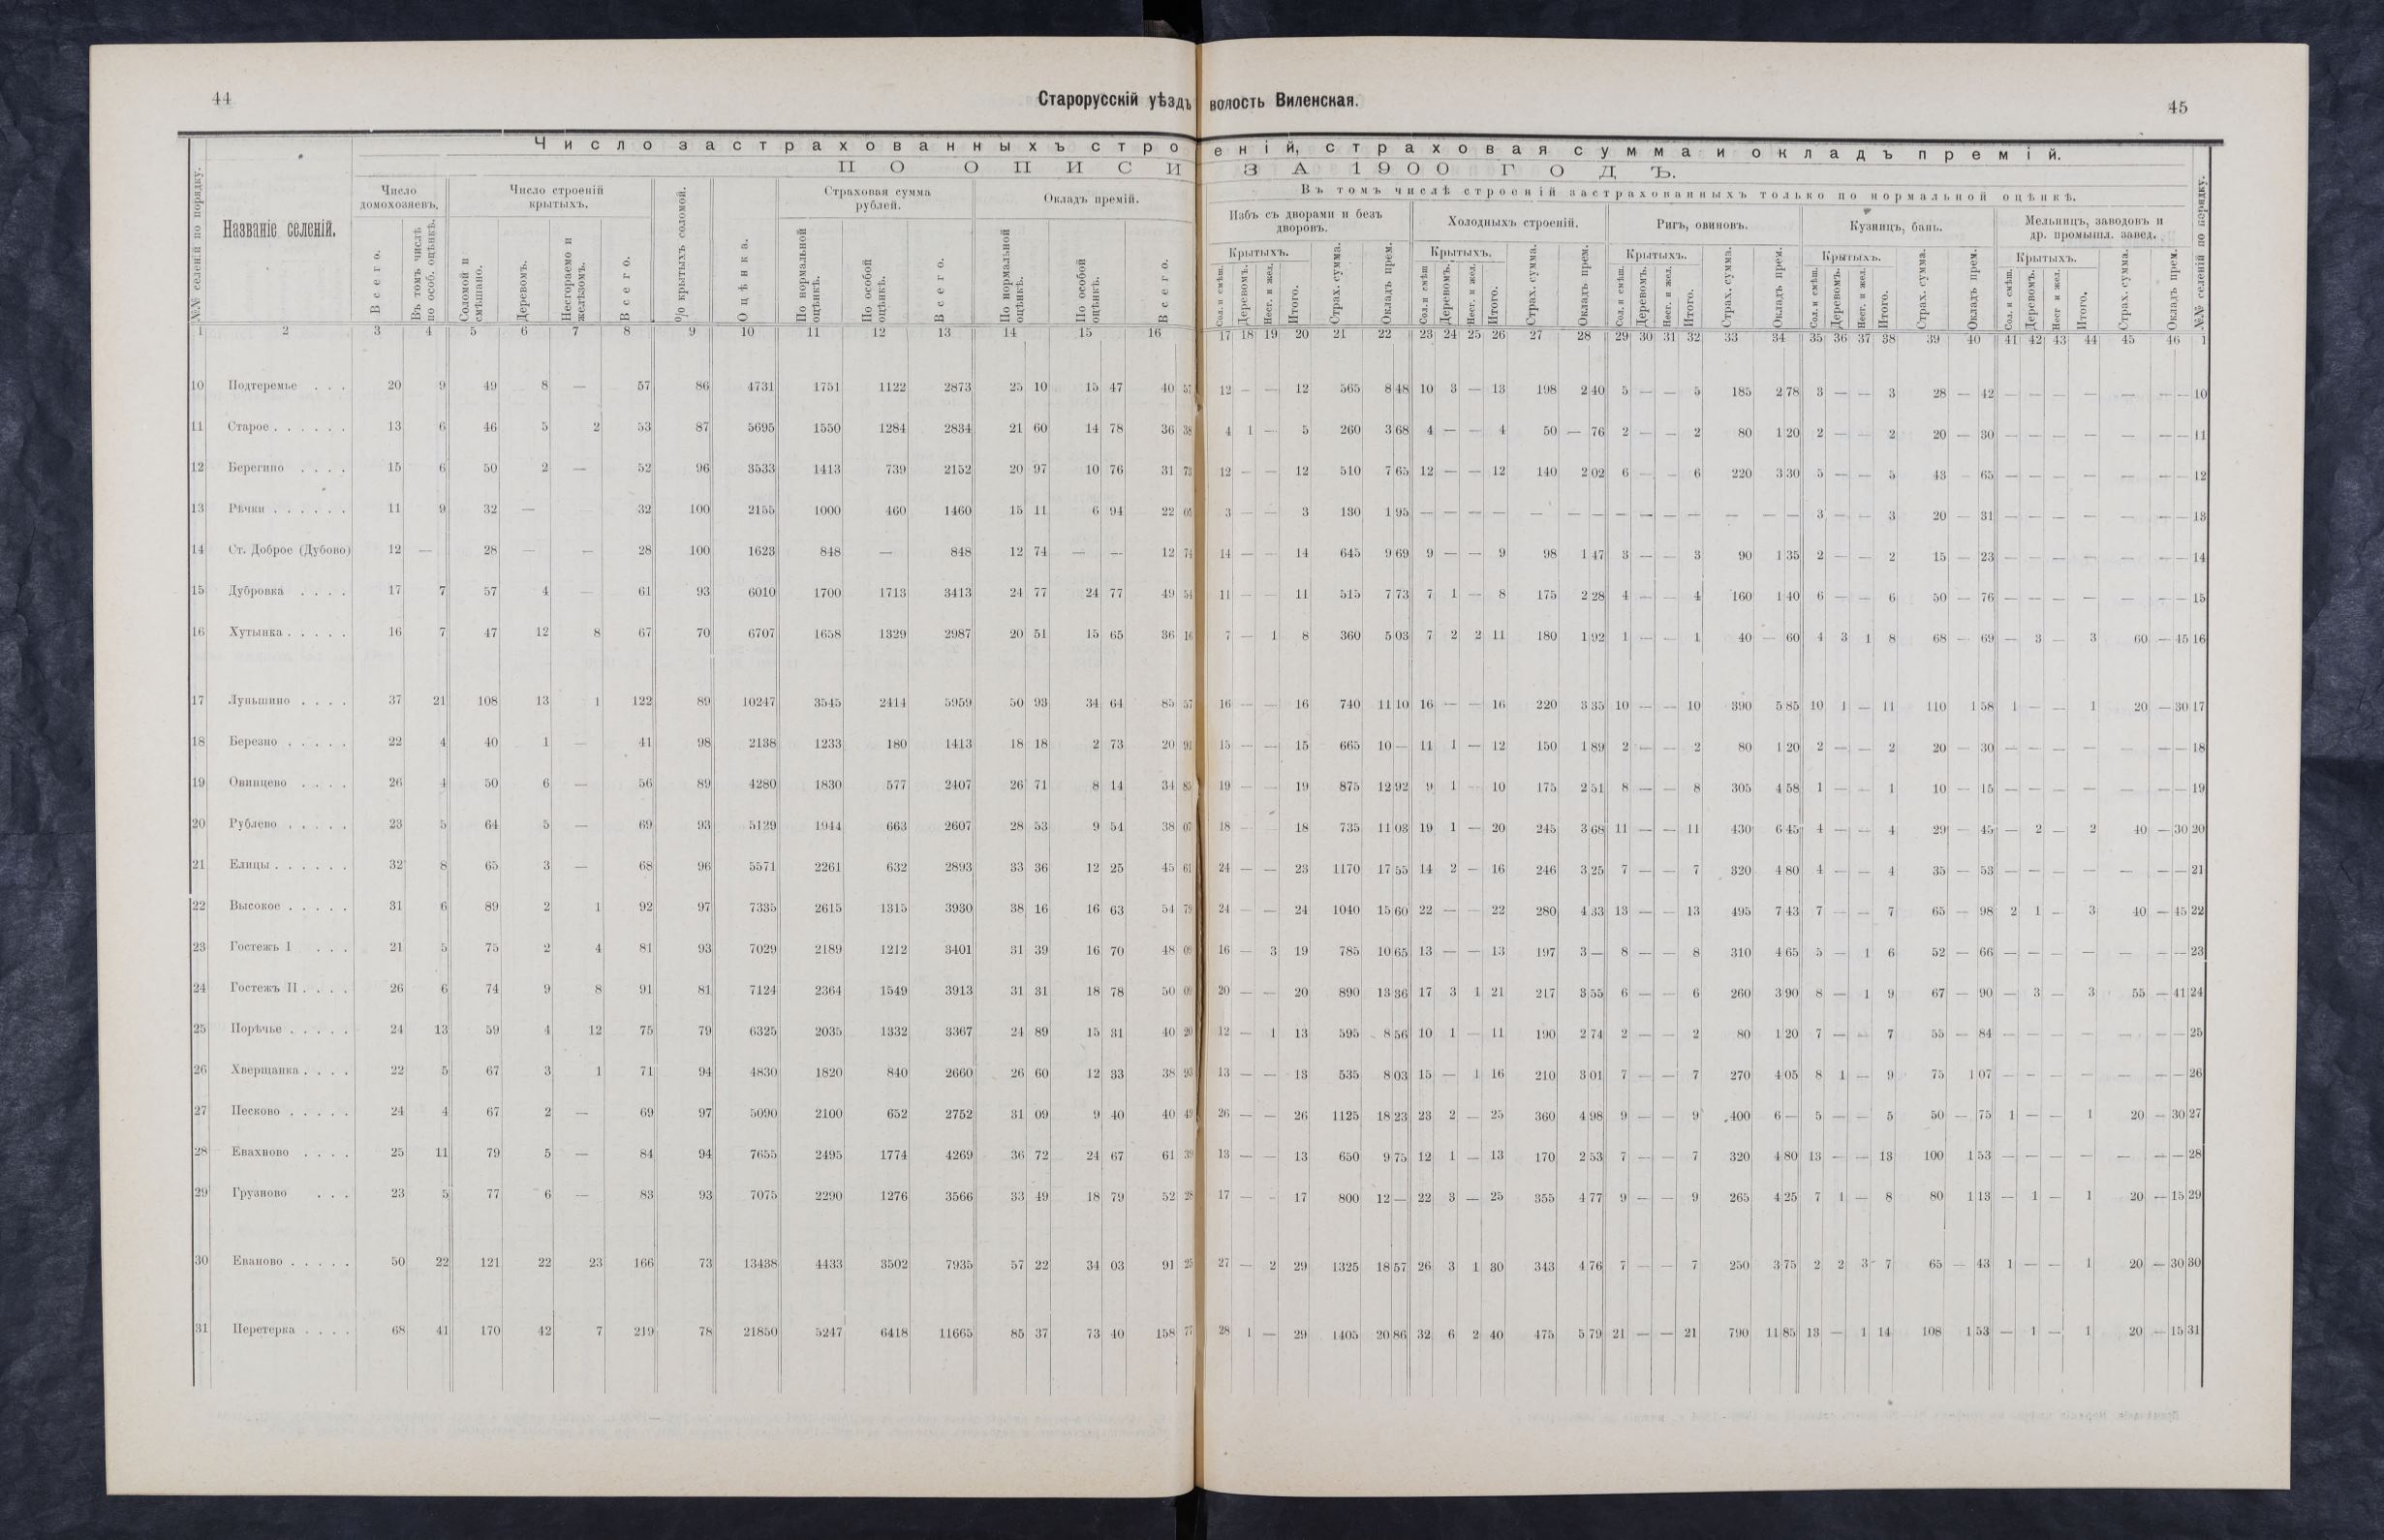 44
Старорусскій уѣздъ
волость Виленская.
45
Число застрахованныхъ стро
еній, страховая сумма и окладъ премій.
ПО ОПИСИ
ЗА 1900 ГОДЪ.
Въ томъ числѣ строеній застрахованныхъ только по нормальной оцѣнкѣ.
№№ селеній по порядку.
Названіе селеній.
Число домохозяевъ,
Всего.
Въ томъ числѣ по особ. оцѣнкѣ.
Число строеній крытыхъ.
Соломой и смѣшано.
Деревомъ.
Несгораемо и желѣзомъ.
Всего.
% крытыхъ соломой.
Оцѣнка.
Страховая сумма рублей.
По нормальной оцѣнкѣ.
По особой оцѣнкѣ.
Всего.
Окладъ премій.
По нормальной оцѣнкѣ.
По особой оцѣнкѣ.
Всего.
Избъ съ дворами и безъ дворовъ.
Крытыхъ.
Сол. и смѣш.
Деревомъ.
Несг. и жел.
Итого.
Страх. сумма.
Окладъ прем.
Холодныхъ строеній.
Крытыхъ.
Сол. и смѣш
Деревомъ.
Несг. и жел.
Итого.
Страх. сумма.
Окладъ прем.
Ригъ, овиновъ.
Крытыхъ.
Сол. и смѣш.
Деревомъ.
Несг. и жел.
Итого.
Страх. сумма.
Окладъ прем.
Кузницъ, бань.
Крытыхъ.
Сол. и смѣш.
Деревомъ.
Несг. и жел.
Итого.
Страх. сумма.
Окладъ прем.
Мельницъ, заводовъ и др. промышл. завед.
Крытыхъ.
Сол. и смѣш.
Деревомъ.
Несг и жел.
Итого.
Страх. сумма.
Окладъ прем.
№№ селеній по порядку.
1 2 3 4 5 6 7 8 9 10 11 12 13 14 15 16 17 18 19 20 21 22 23 24 25 26 27 28 29 30 31 32 33 34 35 36 37 38 39 40 41 42 43 44 45 46 1
10 Подтеремье . . . 20 9 49 8 — 57 86 4731 1751 1122 2873 25 10 15 47 40 57 12 — — 12 565 8 48 10 3 — 13 198 2 40 5 — — 5 185 2 78 3 — — 3 28 — 42 — — — — — — — 10
11 Старое . . . . . . 13 6 46 5 2 53 87 5695 1550 1284 2834 21 60 14 78 36 38 4 1 — 5 260 3 68 4 — — 4 50 — 76 2 — — 2 80 1 20 2 — — 2 20 — 30 — — — — — — — 11
12 Берегино . . . . 15 6 50 2 — 52 96 3533 1413 739 2152 20 97 10 76 31 73 12 — — 12 510 7 65 12 — — 12 140 2 02 6 — — 6 220 3 30 5 — — 5 43 — 65 — — — — — — — 12
13 Рѣчки . . . . . . 11 9 32 — 32 100 2155 1000 460 1460 15 11 6 94 22 05 3 — — 3 130 1 95 — — — — — — — — — — — — — — 3 — — 3 20 — 31 — — — — — — — 13
14 Ст. Доброе (Дубово) 12 — 28 — — 28 100 1623 848 — 848 12 74 — — 12 74 14 — — 14 645 9 69 9 — — 9 98 1 47 3 — — 3 90 1 35 2 — — 2 15 — 23 — — — — — — — 14
15 Дубровка . . . . 17 7 57 4 — 61 93 6010 1700 1713 3413 24 77 24 77 49 54 11 — — 11 515 7 73 7 1 — 8 175 2 28 4 — — 4 160 1 40 6 — — 6 50 — 76 — — — — — — — 15
16 Хутынка . . . . . 16 7 47 12 8 67 70 6707 1658 1329 2987 20 51 15 65 36 16 7 — 1 8 360 5 03 7 2 2 11 180 1 92 1 — — 1 40 — 60 4 3 1 8 68 — 69 — 3 — 3 60 — 45 16
17 Луньшино . . . . 37 21 108 13 1 122 89 10247 3545 2414 5959 50 93 34 64 85 57 16 — — 16 740 11 10 16 — — 16 220 3 35 10 — — 10 390 5 85 10 1 — 11 110 1 58 1 — — 1 20 — 30 17
18 Березно . . . . . 22 4 40 1 — 41 98 2138 1233 180 1413 18 18 2 73 20 91 15 — — 15 665 10 — 11 1 — 12 150 1 89 2 — — 2 80 1 20 2 — — 2 20 — 30 — — — — — — — 18
19 Овинцево . . . . 26 4 50 6 — 56 89 4280 1830 577 2407 26 71 8 14 34 85 19 — — 19 875 12 92 9 1 — 10 175 2 51 8 — — 8 305 4 58 1 — — 1 10 — 15 — — — — — — — 19
20 Рублево . . . . . 23 5 64 5 — 69 93 5129 1944 663 2607 28 53 9 54 38 07 18 — 18 735 11 03 19 1 — 20 245 3 68 11 — — 11 430 6 45 4 — — 4 29 — 45 — 2 — 2 40 — 30 20
21 Елицы . . . . . . 32 8 65 3 — 68 96 5571 2261 632 2893 33 36 12 25 45 61 24 — — 23 1170 17 55 14 2 — 16 246 3 25 7 — — 7 320 4 80 4 — — 4 35 — 53 — — — — — — — 21
22 Высокое . . . . . 31 6 89 2 1 92 97 7335 2615 1315 3930 38 16 16 63 54 79 24 — — 24 1040 15 60 22 — — 22 280 4 33 13 — — 13 495 7 43 7 — — 7 65 — 98 2 1 — 3 40 — 45 22
23 Гостежъ I . . . 21 5 75 2 4 81 93 7029 2189 1212 3401 31 39 16 70 48 09 16 — 3 19 785 10 65 13 — — 13 197 3 — 8 — — 8 310 4 65 5 — 1 6 52 — 66 — — — — — — — 23
24 Гостежъ II . . . . 26 6 74 9 8 91 81 7124 2364 1549 3913 31 31 18 78 50 09 20 — — 20 890 13 36 17 3 1 21 217 3 55 6 — — 6 260 3 90 8 — 1 9 67 — 90 — 3 — 3 55 — 41 24
25 Порѣчье . . . . . 24 13 59 4 12 75 79 6325 2035 1332 3367 24 89 15 31 40 20 12 — 1 13 595 8 56 10 1 — 11 190 2 74 2 — — 2 80 1 20 7 — — 7 55 — 84 — — — — — — — 25
26 Хверщанка . . . . 22 5 67 3 1 71 94 4830 1820 840 2660 26 60 12 33 38 93 13 — — 13 535 8 03 15 — 1 16 210 3 01 7 — — 7 270 4 05 8 1 — 9 75 1 07 — — — — — — — 26
27 Песково . . . . . 24 4 67 2 — 69 97 5090 2100 652 2752 31 09 9 40 40 49 26 — — 26 1125 18 23 23 2 — 25 360 4 98 9 — — 9 400 6 — 5 — — 5 50 — 75 1 — — 1 20 — 30 27
28 Евахново . . . . 25 11 79 5 — 84 94 7655 2495 1774 4269 36 72 24 67 61 39 13 — — 13 650 9 75 12 1 — 13 170 2 53 7 — — 7 320 4 80 13 — — 13 100 1 53 — — — — — — — 28
29 Грузново . . . 23 5 77 6 — 83 93 7075 2290 1276 3566 33 49 18 79 52 28 17 — — 17 800 12 — 22 3 — 25 355 4 77 9 — — 9 265 4 25 7 1 — 8 80 1 13 — 1 — 1 20 — 15 29
30 Еваново . . . . . 50 22 121 22 23 166 73 13438 4433 3502 7935 57 22 34 03 91 25 27 — 2 29 1325 18 57 26 3 1 30 343 4 76 7 — — 7 250 3 75 2 2 3 7 65 — 43 1 — — 1 20 — 30 30
31 Перетерка . . . . 68 41 170 42 7 219 78 21850 5247 6418 11665 85 37 73 40 158 77 28 1 — 29 1405 20 86 32 6 2 40 475 5 79 21 — — 21 790 11 85 13 — 1 14 108 1 53 — 1 — 1 20 — 15 31